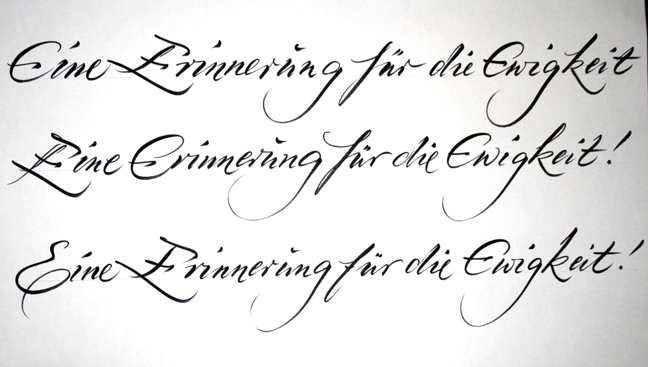 Eine Erinnerung für die Ewigkeit
Eine Erinnerung für die Ewigkeit!
Eine Erinnerung für die Ewigkeit!